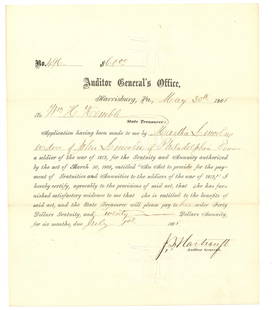 No.
Auditor General's Office,
Harrisburg, Pa., May 30th 186
To Wm H. Kemble
State Treasurer:
Application having been made to me by Martha Lincoln
widow of John Lincoln of Philadelphia
a soldier of the war of 1812, for the Gratuity and Annuity authorized
by the act of March 30, 1866, entitled "An Act to provide for the pay-
ment of Gratuities and Annuities to the soldiers of the war of 1812,"
I hereby certify, agreeably to the provisions of said act, that she has fur-
nished satisfactory evidence to me that she is entitled to the benefit of
said act, and the State Treasurer will please pay to her order Forty
Dollars Gratuity, and twenty Dollars Annuity,
for six months, due July 186
Auditor General.